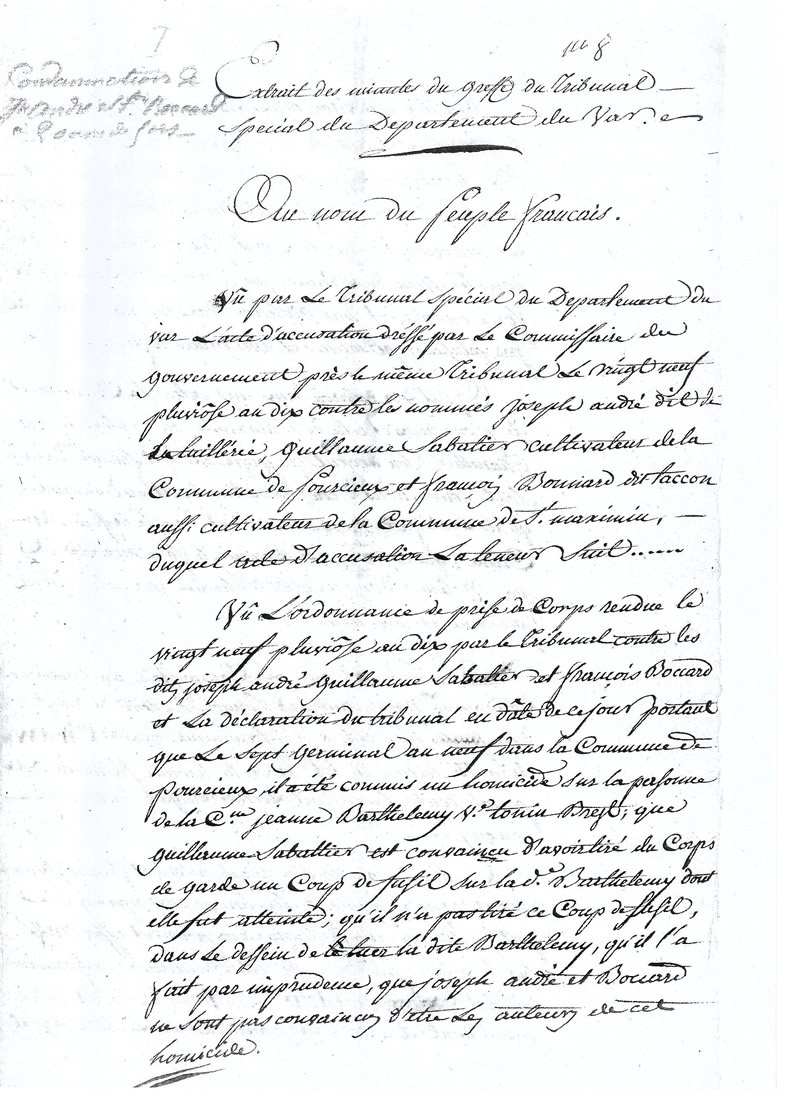 n.° 8
Condamnations de
Jh andré et fs. Bouard
a 2 ans de fers
Extrait des minutes du greffe du Tribunal
Special du Departement du Var.
Au nom du peuple francais.
Vû par Le Tribunal spécial du Departement du
var L'acte d'accusation dressé par Le Commissaire du
gouvernement près le même Tribunal Le vingt neuf
pluviôse an dix contre les nommés joseph andré dit de
La taillérie, guillaume Sabatier cultivateur de la
Commune de pourcieux et françois Bouuard dit taccon
aussi cultivateur de la Commune de St. maximin,
duquel acte d'accusation La teneur Suit......
Vû L'ordonnance de prise de Corps rendue le
vingt neuf pluviôse an dix par le Tribunal contre les
dits joseph andré guillaume Sabatier et françois Bouard
et La déclaration du tribunal en dâte de ce jour portant
que Le Sept Germinal an neuf dans la Commune de
pourcieux, il a été commis un homicide sur la personne
de la C.ne jeanne Barthelemy v.e tonin Brest; que
guillaume Sabattier est convaincu d'avoir tiré du Corps
de garde un Coup de fusil sur la d.e Barthelemy dont
elle fut atteinte; qu'il n'a pas tiré ce Coup de fusil,
dans Le dessein de tuer la dite Barthelemy, qu'il l'a
fait par imprudence, que joseph andré et Bouard
ne sont pas convaincus d'etre Les auteurs de cet
homicide.